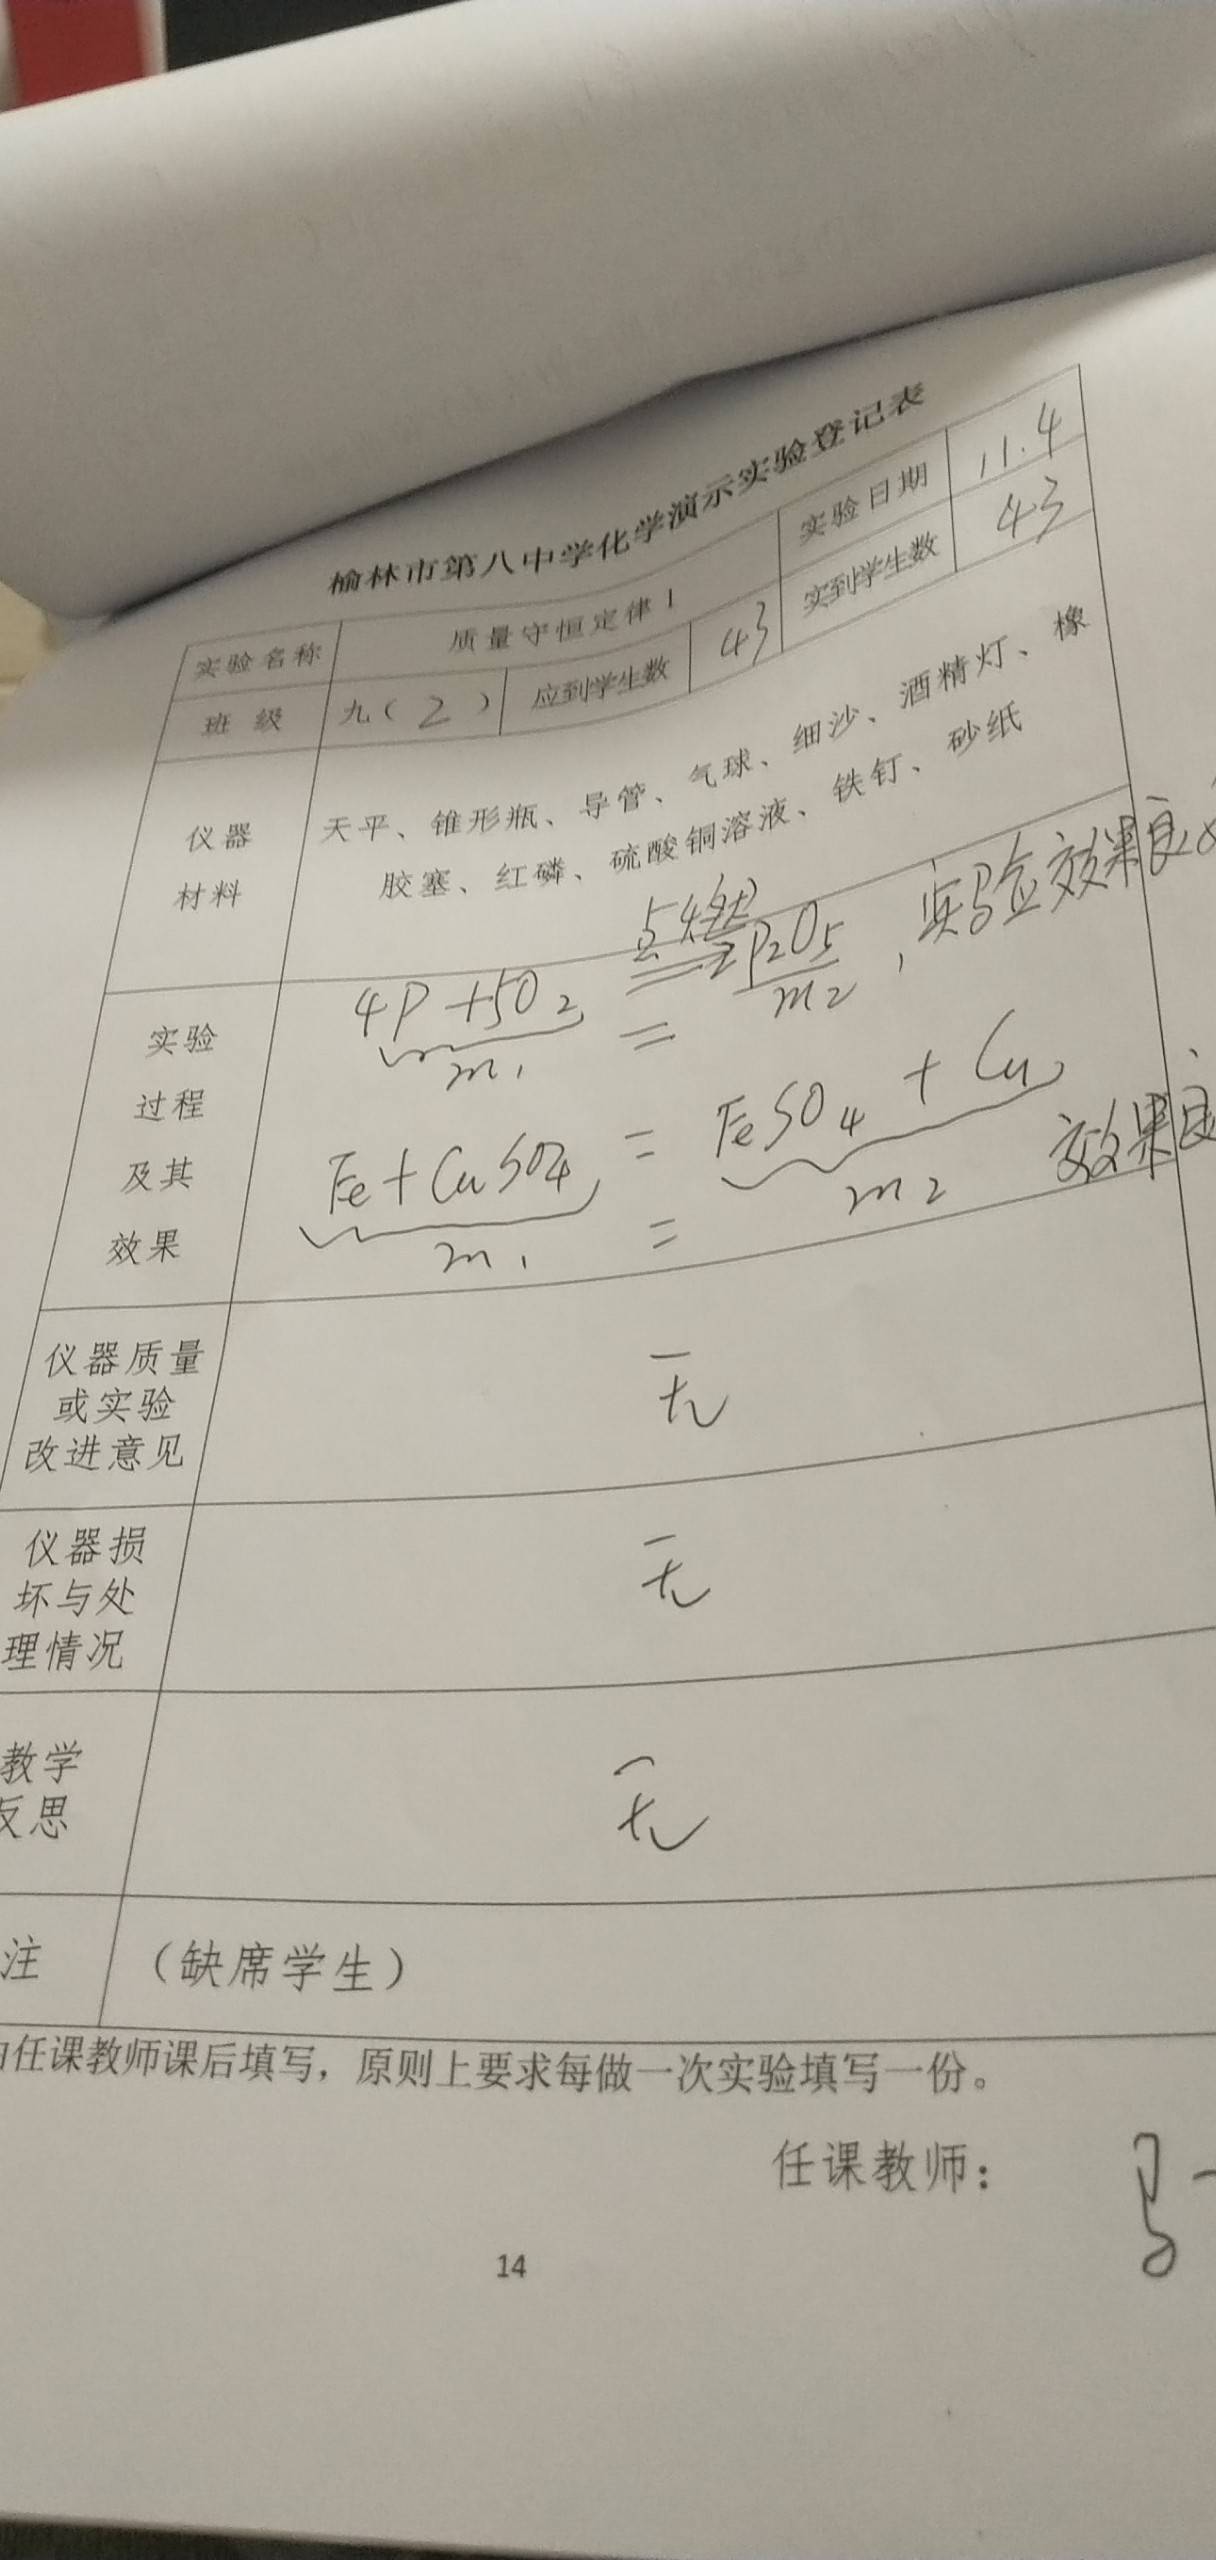 榆林市第八中学化学演示实验登记表
实验名称 质量守恒定律1 实验日期 11.4
班级 九（2） 应到学生数 43 实到学生数 43
仪器
材料
天平、锥形瓶、导管、气球、细沙、酒精灯、橡
胶塞、红磷、硫酸铜溶液、铁钉、砂纸
实验
过程
及其
效果
点燃
4P+5O₂ = 2P₂O₅，实验效果良
m₁ = m₂
Fe+CuSO₄ = FeSO₄+Cu 效果良
m₁ = m₂
仪器质量
或实验
改进意见
无
仪器损
坏与处
理情况
无
教学
反思
无
注 （缺席学生）
任课教师课后填写，原则上要求每做一次实验填写一份。
任课教师：
14